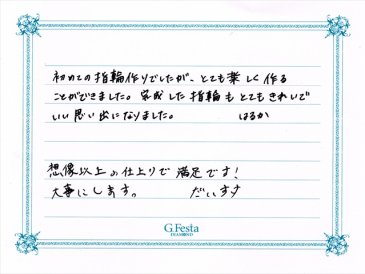 初めての指輪作りでしたが、とても楽しく作る
ことができました。完成した指輪もとてもきれいで
いい思い出になりました。 はるか
想像以上の仕上りで満足です!
大事にします。 だいすけ
G.Festa
DIAMOND